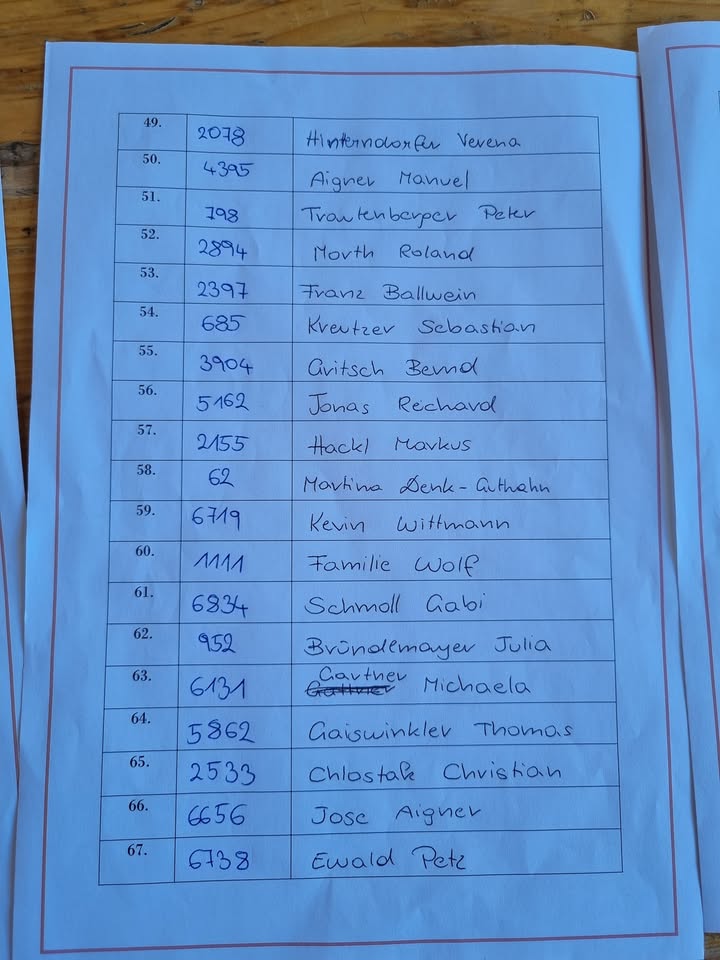 49. 2078 Hinterndorfer Verena
50. 4395 Aigner Manuel
51. 798 Trautenberger Peter
52. 2894 Morth Roland
53. 2397 Franz Ballwein
54. 685 Kreutzer Sebastian
55. 3904 Gritsch Bernd
56. 5162 Jonas Reichard
57. 2155 Hackl Markus
58. 62 Martina Denk-Guthahn
59. 6719 Kevin Wittmann
60. 1111 Familie Wolf
61. 6834 Schmoll Gabi
62. 952 Bründlmayer Julia
63. 6131 Gartner Michaela
64. 5862 Gaiswinkler Thomas
65. 2533 Christian
66. 6656 Jose Aigner
67. 6738 Ewald Petz